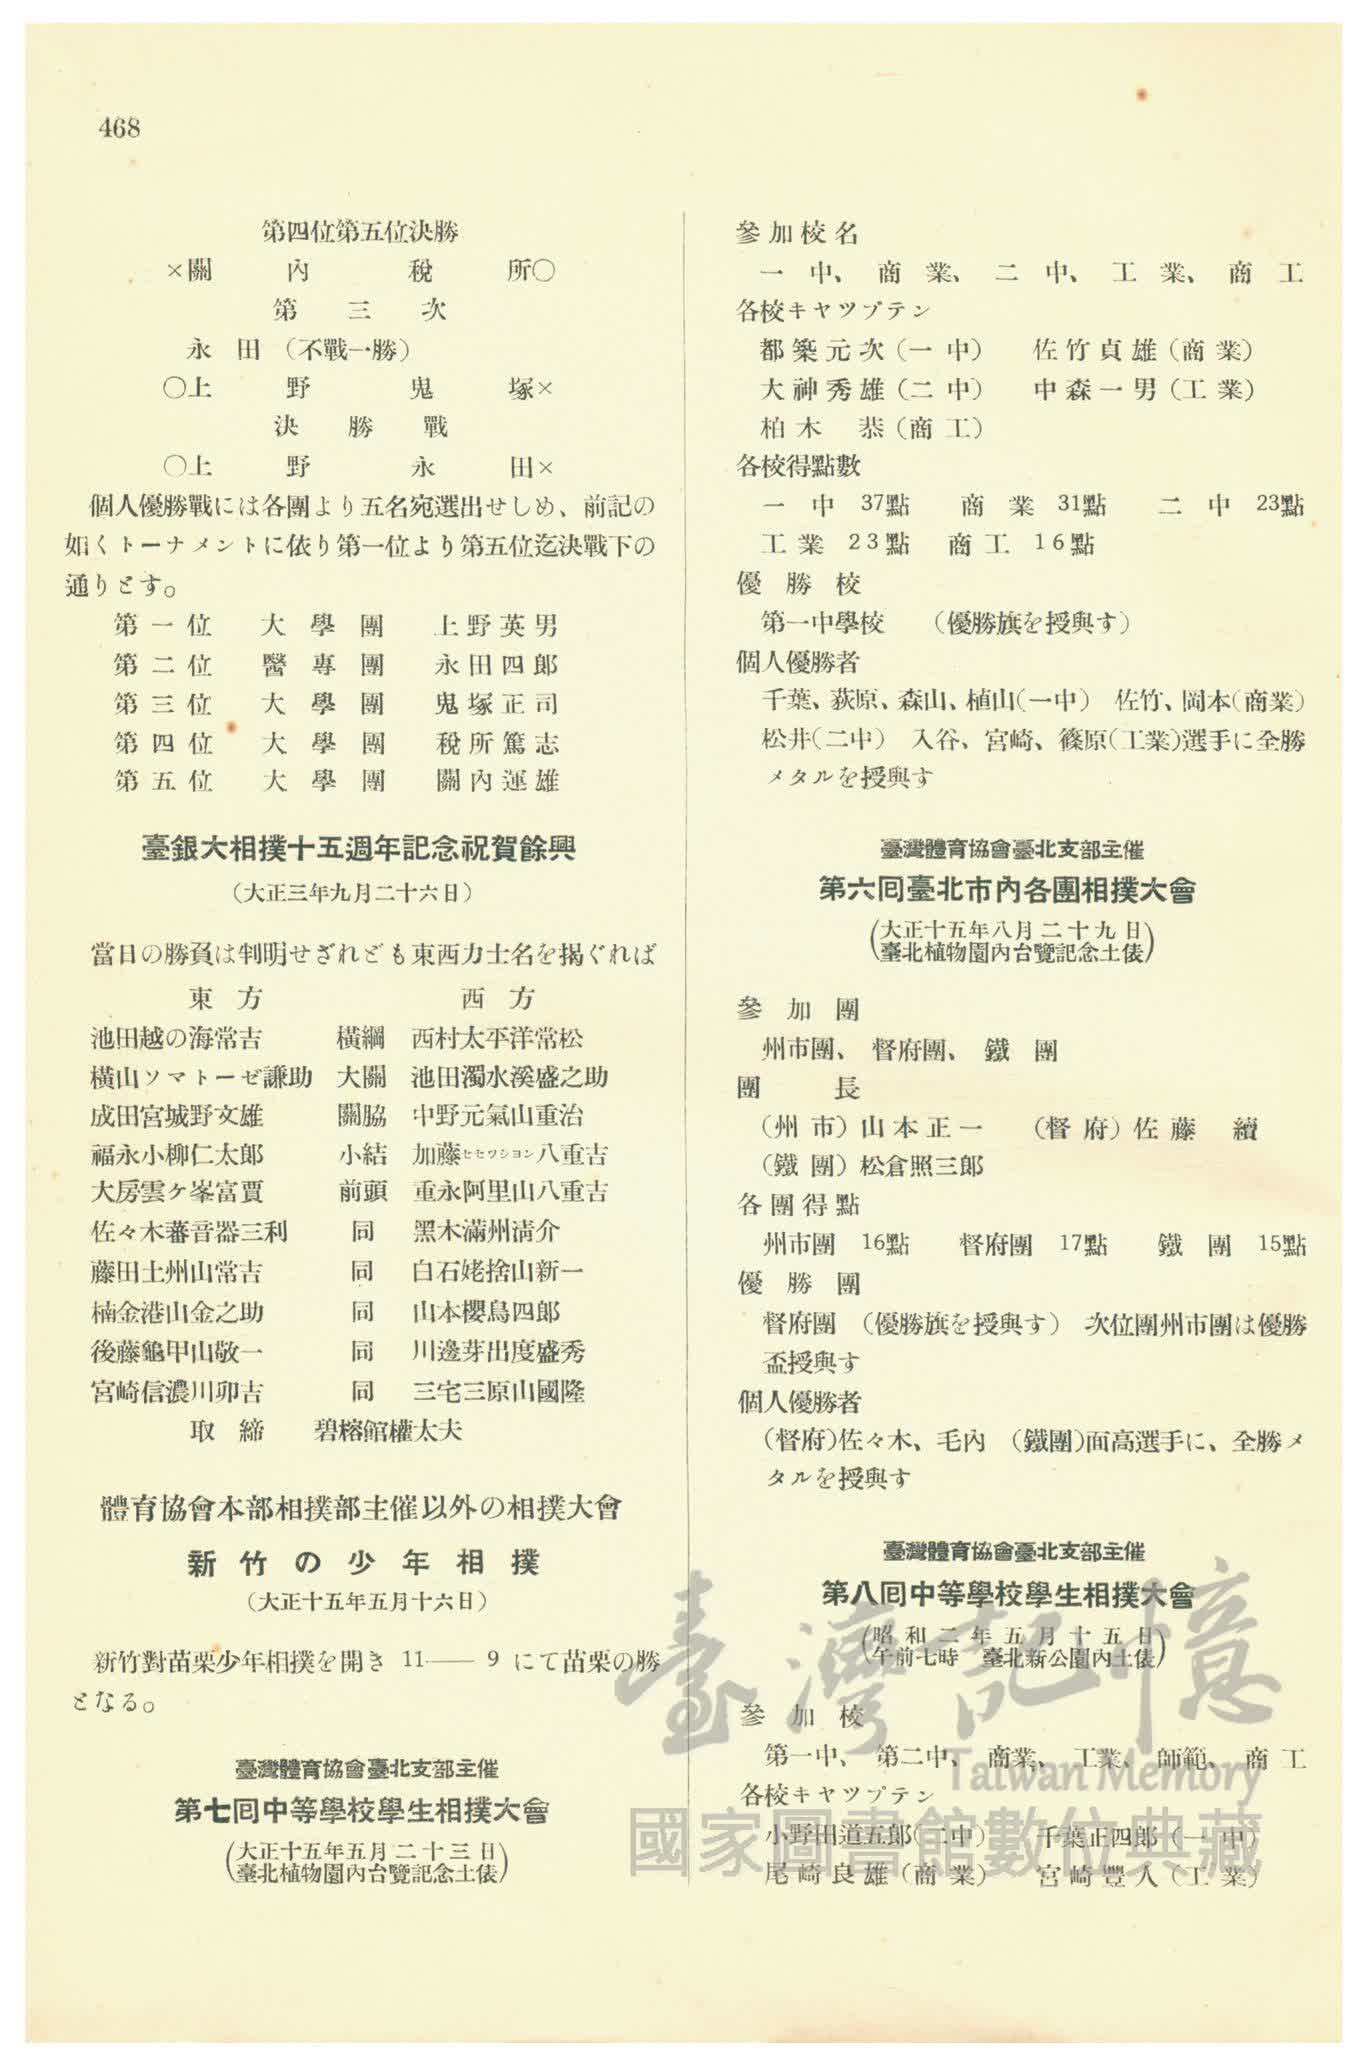 468
第四位第五位決勝
×關 內 稅 所〇
第 三 次
永 田 （不戰一勝）
〇上 野 鬼 塚×
決 勝 戰
〇上 野 永 田×
個人優勝戰には各團より五名宛選出せしめ、前記の
如くトーナメントに依り第一位より第五位迄決戰下の
通りとす。
第一位 大學團 上野英男
第二位 醫專團 永田四郎
第三位 大學團 鬼塚正司
第四位 大學團 稅所篤志
第五位 大學團 關內運雄
臺銀大相撲十五週年記念祝賀餘興
（大正三年九月二十六日）
當日の勝負は判明せざれども東西力士名を揭ぐれば
東方 西方
池田越の海常吉 橫綱 西村太平洋常松
橫山ソマトーゼ謙助 大關 池田濁水溪盛之助
成田宮城野文雄 關脇 中野元氣山重治
福永小柳仁太郎 小結 加藤セセツシヨン八重吉
大房雲ケ峯富賈 前頭 重永阿里山八重吉
佐々木蕃音器三利 同 黑木滿州淸介
藤田土州山常吉 同 白石姥捨山新一
楠金港山金之助 同 山本櫻島四郎
後藤龜甲山敬一 同 川邊芽出度盛秀
宮崎信濃川卯吉 同 三宅三原山國隆
取締 碧榕館權太夫
體育協會本部相撲部主催以外の相撲大會
新竹の少年相撲
（大正十五年五月十六日）
新竹對苗栗少年相撲を開き 11—— 9 にて苗栗の勝
となる。
臺灣體育協會臺北支部主催
第七回中等學校學生相撲大會
（大正十五年五月二十三日
臺北植物園內台覽記念土俵）
參加校名
一中、商業、二中、工業、商工
各校キヤツプテン
都築元次（一中） 佐竹貞雄（商業）
大神秀雄（二中） 中森一男（工業）
柏木 恭（商工）
各校得點數
一中 37點 商業 31點 二中 23點
工業 23點 商工 16點
優勝校
第一中學校 （優勝旗を授與す）
個人優勝者
千葉、荻原、森山、植山（一中） 佐竹、岡本（商業）
松井（二中） 入谷、宮崎、篠原（工業）選手に全勝
メタルを授與す
臺灣體育協會臺北支部主催
第六回臺北市內各團相撲大會
（大正十五年八月二十九日
臺北植物園內台覽記念土俵）
參加團
州市團、督府團、鐵團
團長
（州市）山本正一 （督府）佐藤 續
（鐵團）松倉照三郎
各團得點
州市團 16點 督府團 17點 鐵團 15點
優勝團
督府團 （優勝旗を授與す） 次位團州市團は優勝
盃授與す
個人優勝者
（督府）佐々木、毛內 （鐵團）面高選手に、全勝メ
タルを授與す
臺灣體育協會臺北支部主催
第八回中等學校學生相撲大會
（昭和二年五月十五日
午前七時 臺北新公園內土俵）
參加校
第一中、第二中、商業、工業、師範、商工
各校キヤツプテン
小野田道五郎（二中） 千葉正四郎（一中）
尾崎良雄（商業） 宮崎豐人（工業）
臺灣記憶
Taiwan Memory
國家圖書館數位典藏